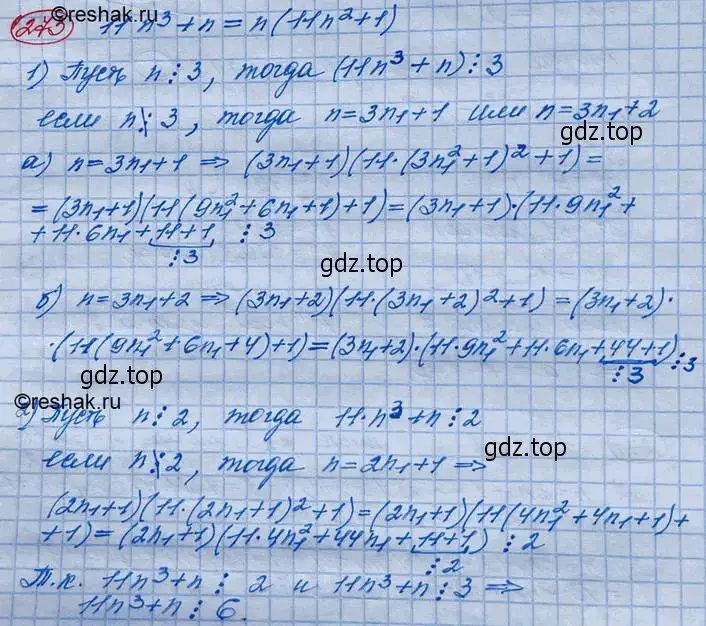 ©reshak.ru
273 11n³+n = n(11n²+1)
1) Пусть n⋮3, тогда (11n³+n)⋮3
если n⋮̸3, тогда n=3n₁+1 или n=3n₁+2
gdz.top
а) n=3n₁+1 ⇒ (3n₁+1)(11·(3n₁²+1)²+1)=
=(3n₁+1)(11(9n₁²+6n₁+1)+1)=(3n₁+1)·(11·9n₁²+
+11·6n₁+11+1 ⋮3
⋮3
gdz.top
б) n=3n₁+2 ⇒ (3n₁+2)(11·(3n₁+2)²+1)=(3n₁+2)·
·(11(9n₁²+6n₁+4)+1)=(3n₁+2)·(11·9n₁²+11·6n₁+44+1)⋮3
⋮3
gdz.top
©reshak.ru
2) Пусть n⋮2, тогда 11·n³+n⋮2
gdz.top
если n⋮̸2, тогда n=2n₁+1 ⇒
(2n₁+1)(11·(2n₁+1)²+1)=(2n₁+1)(11(4n₁²+4n₁+1)+
+1)=(2n₁+1)(11·4n₁²+44n₁+11+1) ⋮2
⋮2
Т.к. 11n³+n⋮2 и 11n³+n⋮3 ⇒
11n³+n⋮6.